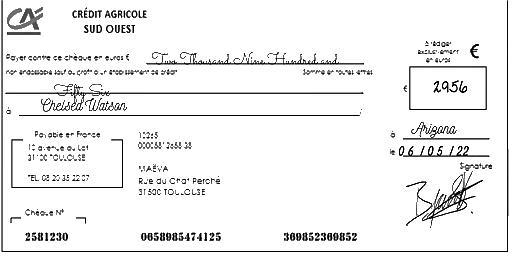 CRÉDIT AGRICOLE
SUD OUEST
Payer contre ce chèque en euros € Two Thousand Nine Hundred and
non endossable sauf au profit d'un établissement de crédit Somme en toutes lettres
Fifty Six
à Chelsea Watson
à rédiger
exclusivement
en euros
€
€ 2956
Payable en France
10 avenue du Lot
31100 TOULOUSE
TEL. 08 20 35 22 07
10265
MAËVA
Rue du Chat Perché
31500 TOULOUSE
à Arizona
le 06/05/22
Signature
Chèque N°
2581230 0658985474125 369852369852